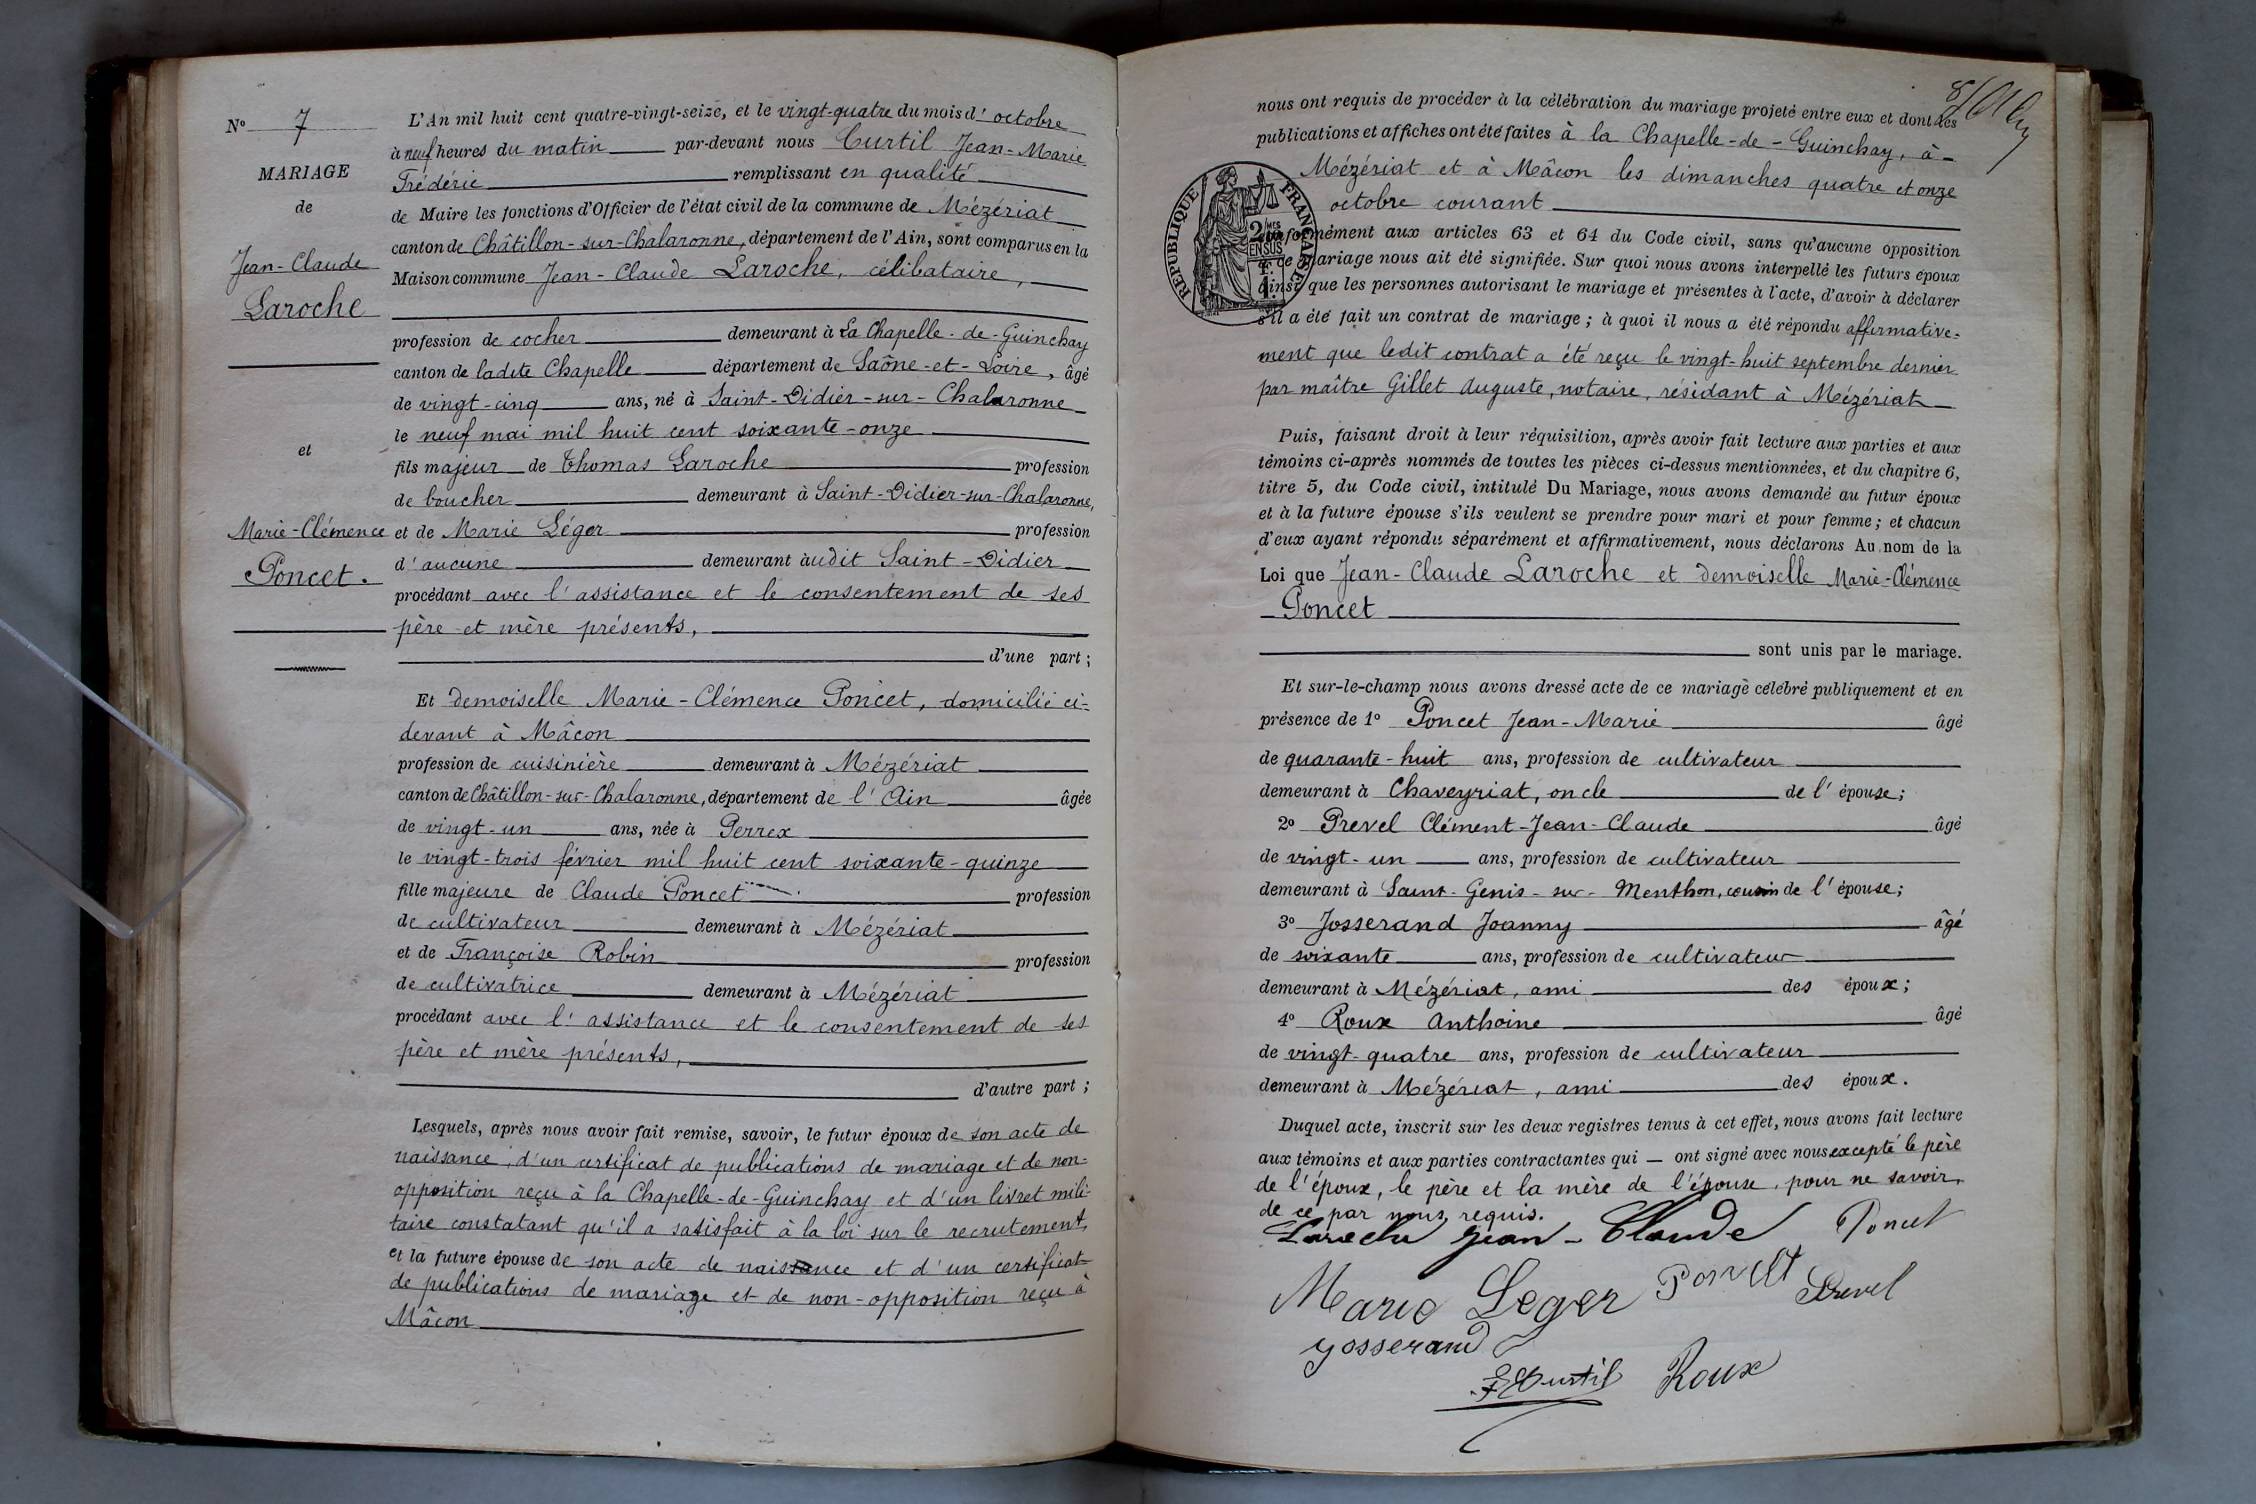 N° 7
MARIAGE
de
Jean-Claude
Laroche
et
Marie-Clémence
Poncet.
L'An mil huit cent quatre-vingt-seize, et le vingt-quatre du mois d'octobre
à neuf heures du matin par-devant nous Curtil Jean-Marie
Frédéric remplissant en qualité
de Maire les fonctions d'Officier de l'état civil de la commune de Mézériat
canton de Châtillon-sur-Chalaronne, département de l'Ain, sont comparus en la
Maison commune Jean-Claude Laroche, célibataire,
profession de cocher demeurant à La Chapelle-de-Guinchay
canton de ladite Chapelle département de Saône-et-Loire, âgé
de vingt-cinq ans, né à Saint-Didier-sur-Chalaronne
le neuf mai mil huit cent soixante-onze
fils majeur de Thomas Laroche profession
de boucher demeurant à Saint-Didier-sur-Chalaronne,
et de Marie Léger profession
d'aucune demeurant àudit Saint-Didier
procédant avec l'assistance et le consentement de ses
père et mère présents,
d'une part;
Et demoiselle Marie-Clémence Poncet, domicilié ci-
devant à Mâcon
profession de cuisinière demeurant à Mézériat
canton de Châtillon-sur-Chalaronne, département de l'Ain âgée
de vingt-un ans, née à Perrex
le vingt-trois février mil huit cent soixante-quinze
fille majeure de Claude Poncet profession
de cultivateur demeurant à Mézériat
et de Françoise Robin profession
de cultivatrice demeurant à Mézériat
procédant avec l'assistance et le consentement de ses
père et mère présents,
d'autre part;
Lesquels, après nous avoir fait remise, savoir, le futur époux de son acte de
naissance, d'un certificat de publications de mariage et de non-
opposition reçu à la Chapelle-de-Guinchay et d'un livret mili-
taire constatant qu'il a satisfait à la loi sur le recrutement,
et la future épouse de son acte de naissance et d'un certificat
de publications de mariage et de non-opposition reçu à
Mâcon
nous ont requis de procéder à la célébration du mariage projeté entre eux et dont les
publications et affiches ont été faites à la Chapelle-de-Guinchay, à
Mézériat et à Mâcon les dimanches quatre et onze
octobre courant
RÉPUBLIQUE FRANÇAISE
2/10MES
EN SUS
conformément aux articles 63 et 64 du Code civil, sans qu'aucune opposition
à ce mariage nous ait été signifiée. Sur quoi nous avons interpellé les futurs époux
ainsi que les personnes autorisant le mariage et présentes à l'acte, d'avoir à déclarer
s'il a été fait un contrat de mariage; à quoi il nous a été répondu affirmative-
ment que ledit contrat a été reçu le vingt-huit septembre dernier
par maître Gillet Auguste, notaire, résidant à Mézériat
Puis, faisant droit à leur réquisition, après avoir fait lecture aux parties et aux
témoins ci-après nommés de toutes les pièces ci-dessus mentionnées, et du chapitre 6,
titre 5, du Code civil, intitulé Du Mariage, nous avons demandé au futur époux
et à la future épouse s'ils veulent se prendre pour mari et pour femme; et chacun
d'eux ayant répondu séparément et affirmativement, nous déclarons Au nom de la
Loi que Jean-Claude Laroche et demoiselle Marie-Clémence
Poncet
sont unis par le mariage.
Et sur-le-champ nous avons dressé acte de ce mariage célébré publiquement et en
présence de 1° Poncet Jean-Marie âgé
de quarante-huit ans, profession de cultivateur
demeurant à Chaveyriat, oncle de l'épouse;
2° Prevel Clément-Jean-Claude âgé
de vingt-un ans, profession de cultivateur
demeurant à Saint-Genis-sur-Menthon, cousin de l'épouse;
3° Josserand Joanny âgé
de soixante ans, profession de cultivateur
demeurant à Mézériat, ami des époux;
4° Roux Anthoine âgé
de vingt-quatre ans, profession de cultivateur
demeurant à Mézériat, ami des époux.
Duquel acte, inscrit sur les deux registres tenus à cet effet, nous avons fait lecture
aux témoins et aux parties contractantes qui — ont signé avec nous excepté le père
de l'époux, le père et la mère de l'épouse, pour ne savoir,
de ce par nous requis.
Laroche Jean-Claude Poncet
Marie Leger Poncet Prevel
Josserand
F Curtil Roux